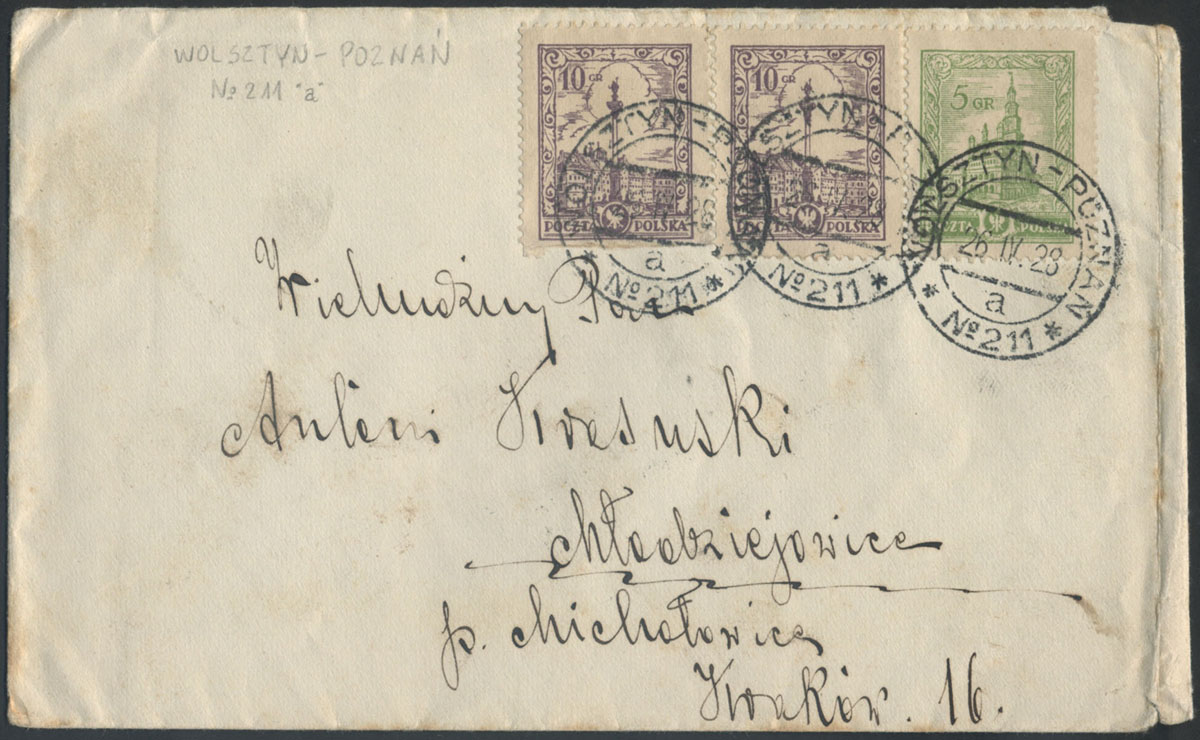 WOLSZTYN – POZNAŃ
№ 211 "a"
10 GR
POCZTA POLSKA
10 GR
POCZTA POLSKA
5 GR
POCZTA POLSKA
WOLSZTYN – P
a
* № 211 *
WOLSZTYN – P
a
* № 211 *
WOLSZTYN – POZNAŃ
26 IV. 28
a
* № 211 *
Wielmożny Pan
Antoni Krasuski
Młodziejowice
p. Michałowice
Kraków. 16.